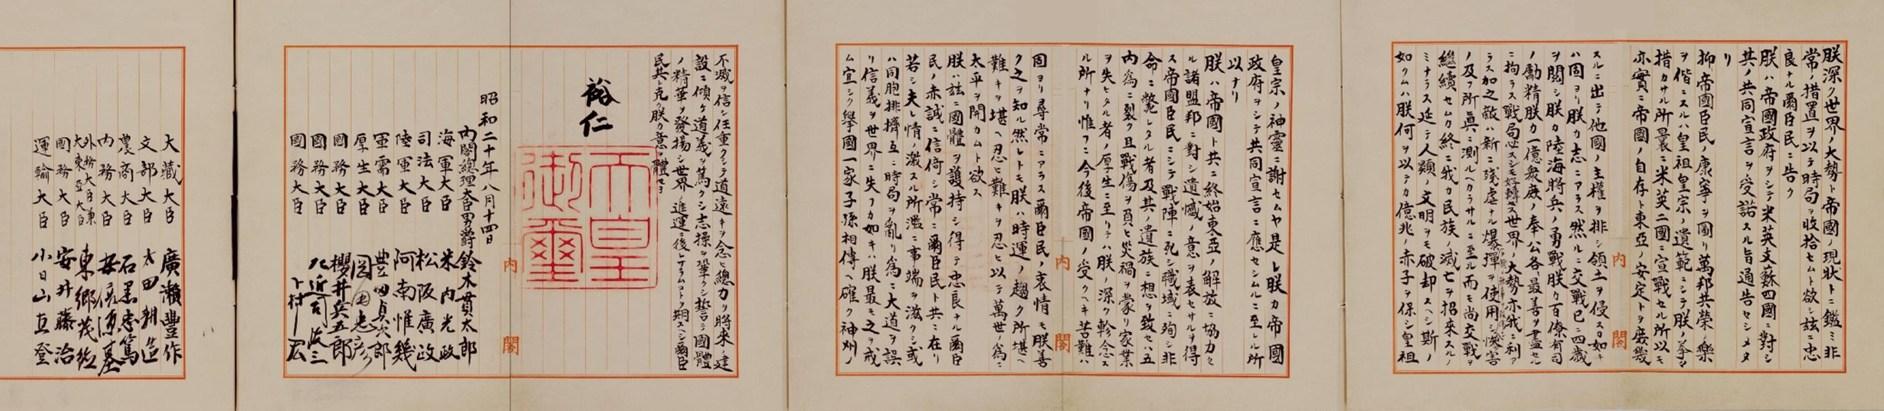 朕深ク世界ノ大勢ト帝國ノ現状トニ鑑ミ非
常ノ措置ヲ以テ時局ヲ收拾セムト欲シ茲ニ忠
良ナル爾臣民ニ告ク
朕ハ帝國政府ヲシテ米英支蘇四國ニ對シ
其ノ共同宣言ヲ受諾スル旨通告セシメタ
リ
抑〻帝國臣民ノ康寧ヲ圖リ萬邦共榮ノ樂
ヲ偕ニスルハ皇祖皇宗ノ遺範ニシテ朕ノ拳々
措カサル所曩ニ米英二國ニ宣戰セル所以モ
亦實ニ帝國ノ自存ト東亞ノ安定トヲ庶幾
スルニ出テ他國ノ主權ヲ排シ領土ヲ侵スカ如キ
ハ固ヨリ朕カ志ニアラス然ルニ交戰已ニ四歳
ヲ閲シ朕カ陸海將兵ノ勇戰朕カ百僚有司
ノ勵精朕カ一億衆庶ノ奉公各〻最善ヲ盡セル
ニ拘ラス戰局必スシモ好轉セス世界ノ大勢亦我ニ利ア
内閣
ラス加之敵ハ新ニ殘虐ナル爆彈ヲ使用シ惨害
ノ及フ所眞ニ測ルヘカラサルニ至ル而モ尚交戰ヲ
繼續セムカ終ニ我カ民族ノ滅亡ヲ招來スルノ
ミナラス延テ人類ノ文明ヲモ破却スヘシ斯ノ
如クムハ朕何ヲ以テカ億兆ノ赤子ヲ保シ皇祖
皇宗ノ神靈ニ謝セムヤ是レ朕カ帝國
政府ヲシテ共同宣言ニ應セシムルニ至レル所
以ナリ
朕ハ帝國ト共ニ終始東亞ノ解放ニ協力セ
ル諸盟邦ニ對シ遺憾ノ意ヲ表セサルヲ得
ス帝國臣民ニシテ戰陣ニ死シ職域ニ殉シ非
命ニ斃レタル者及其ノ遺族ニ想ヲ致セハ五
内爲ニ裂ク且戰傷ヲ負ヒ災禍ヲ蒙リ家業
ヲ失ヒタル者ノ厚生ニ至リテハ朕ノ深ク軫念ス
ル所ナリ惟フニ今後帝國ノ受クヘキ苦難ハ
内閣
固ヨリ尋常ニアラス爾臣民ノ衷情モ朕善
ク之ヲ知ル然レトモ朕ハ時運ノ趨ク所堪ヘ
難キヲ堪ヘ忍ヒ難キヲ忍ヒ以テ萬世ノ爲ニ
太平ヲ開カムト欲ス
朕ハ茲ニ國體ヲ護持シ得テ忠良ナル爾臣
民ノ赤誠ニ信倚シ常ニ爾臣民ト共ニ在リ
若シ夫レ情ノ激スル所濫ニ事端ヲ滋クシ或
ハ同胞排擠互ニ時局ヲ亂リ爲ニ大道ヲ誤
リ信義ヲ世界ニ失フカ如キハ朕最モ之ヲ戒
ム宜シク擧國一家子孫相傳ヘ確ク神州ノ
不滅ヲ信シ任重クシテ道遠キヲ念ヒ總力ヲ將來ノ建
設ニ傾ケ道義ヲ篤クシ志操ヲ鞏クシ誓テ國體
ノ精華ヲ發揚シ世界ノ進運ニ後レサラムコトヲ期スヘシ爾臣
民其レ克ク朕カ意ヲ體セヨ
裕仁
天皇御璽
内閣
昭和二十年八月十四日
内閣總理大臣男爵 鈴木貫太郎
海軍大臣 米内光政
司法大臣 松阪廣政
陸軍大臣 阿南惟幾
軍需大臣 豊田貞次郎
厚生大臣 岡田忠彦
國務大臣 櫻井兵五郎
國務大臣 左近司政三
國務大臣 下村宏
大藏大臣 廣瀬豊作
文部大臣 太田耕造
農商大臣 石黒忠篤
内務大臣 安倍源基
外務大臣兼大東亞大臣 東郷茂徳
國務大臣 安井藤治
運輸大臣 小日山直登